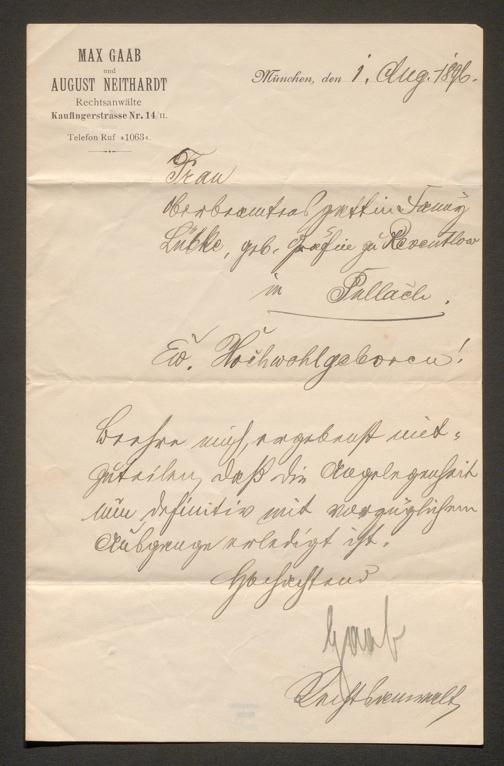 MAX GAAB
und
AUGUST NEITHARDT
Rechtsanwälte
Kaufingerstrasse Nr. 14/II.
Telefon Ruf »1063«.
München, den 1. Aug. 1896.
Frau
Lübke, geb. Gräfin zu Reventlow
in Pullach.
Ew. Hochwohlgeboren!
Beehre mich, ergebenst mit-
zuteilen, daß die Angelegenheit
nun definitiv mit vorzüglichem
Ausgange erledigt ist.
Hochachtend
Gaab
Rechtsanwalt